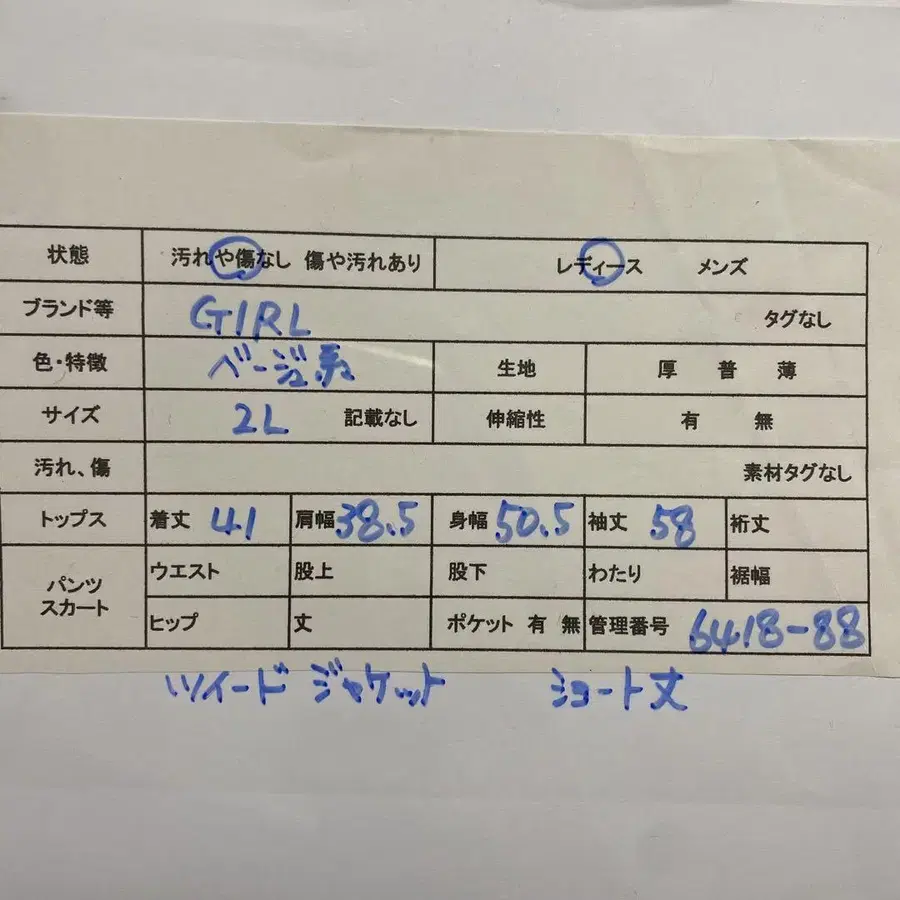 状態 汚れや傷なし 傷や汚れあり レディース メンズ
ブランド等 GIRL タグなし
色・特徴 ベージュ系 生地 厚 普 薄
サイズ 2L 記載なし 伸縮性 有 無
汚れ、傷 素材タグなし
トップス 着丈 41 肩幅 38.5 身幅 50.5 袖丈 58 裄丈
パンツ スカート ウエスト 股上 股下 わたり 裾幅
ヒップ 丈 ポケット 有 無 管理番号 6418-88
ツイード ジャケット ショート丈